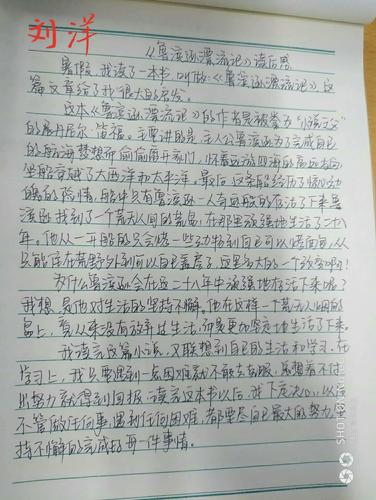 刘洋
《鲁滨逊漂流记》读后感
暑假,我读了一本书,叫做《鲁滨逊漂流记》这
篇文章给了我很大的启发。
这本《鲁滨逊漂流记》的作者是被誉为“小说之父”
的丹尼尔·笛福。主要讲的是主人公鲁滨逊为了完成自己
的航海梦想而偷偷离开家门,怀着远游四海的高远志向
坐船穿越了大西洋和太平洋。最后,这条船经历了惊心动
魄的险情,船中只有鲁滨逊一人奇迹般的存活了下来鲁
滨逊找到了一个荒无人间的荒岛,在那里顽强地生活了二十八
年。他从一开始的只会烧一些动物到自己可以烤面包,从
只能住在荒野外到可以自己盖房子,这是多大的一个改变啊!
为什么鲁滨逊会在这二十八年中顽强地存活下来呢?
我想是他对生活的坚持不懈。他在这样一个荒无人烟的
岛上,居从来没有放弃过生活,而是更加坚定地生活了下来。
我读完这篇小说,又联想到自己的生活和学习。在
学习上,我只要遇到一点困难就不敢去克服,总想着不付
出努力就得到回报。读完这本书以后,我下定决心,以后
不管做任何事,遇到任何困难,都要尽自己最大的努力,坚
持不懈的完成好每一件事情。